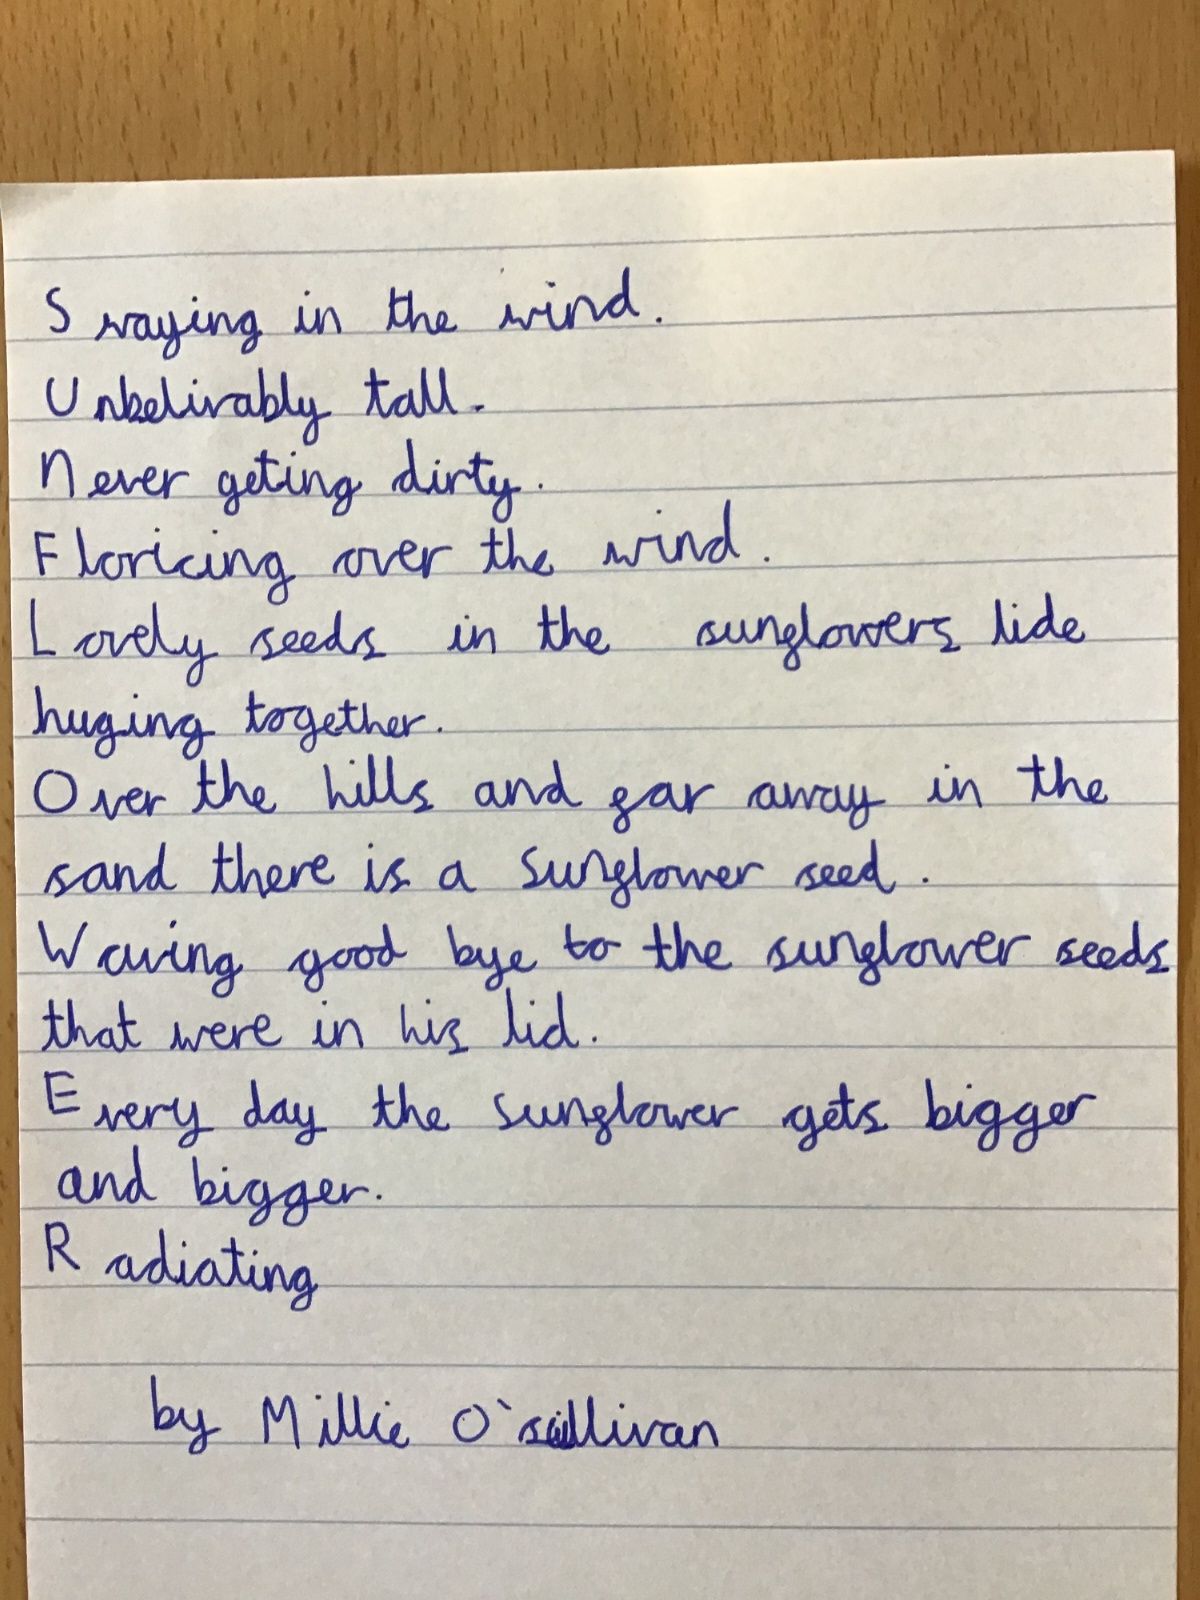 Swaying in the wind.
Unbelivably tall.
Never geting dirty.
Floricing over the wind.
Lovely seeds in the sunflowers lide
huging together.
Over the hills and far away in the
sand there is a sunflower seed.
Waving good bye to the sunflower seeds
that were in his lid.
Every day the sunflower gets bigger
and bigger.
Radiating
by Millie O'sullivan